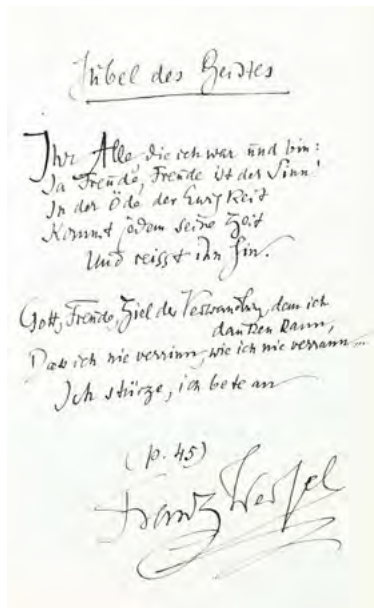 Jubel des Geistes
Ihr Alle, die ich war und bin:
Ja Freude, Freude ist der Sinn!
In der Öde der Ewigkeit
Kommt jedem seine Zeit
Und reisst ihn hin.
Gott, Freude, Ziel der Verwandlung, dem ich
danken kann,
Dass ich nie verrinn, wie ich nie verrann...
Ich stürze, ich bete an
(p. 45)
Franz Werfel